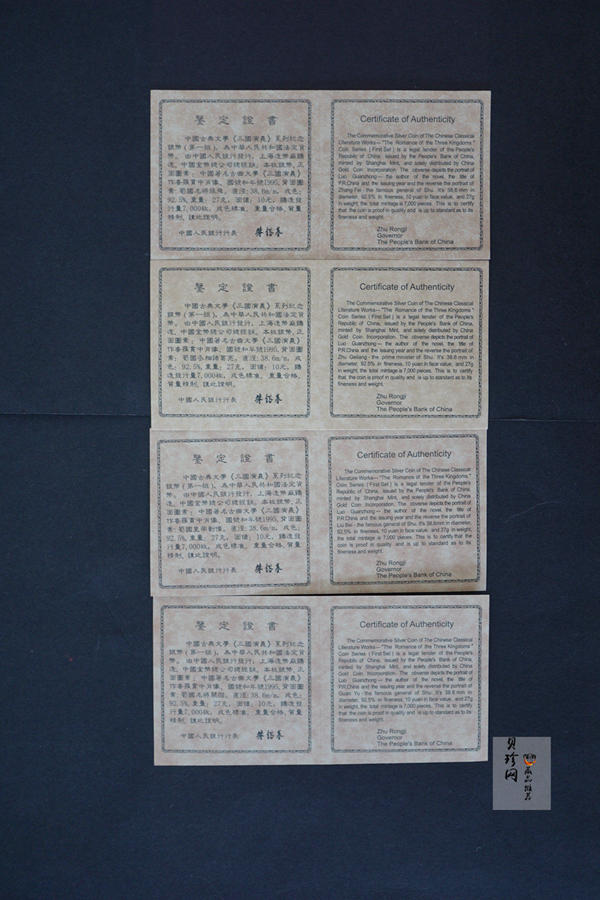 鑒定證書
中國古典文學《三國演義》系列紀念
銀幣(第一組)，為中華人民共和國法定貨
幣。由中國人民銀行發行，上海造幣廠鑄
造，中國金幣總公司總經銷。本枚銀幣，正
面圖案：中國著名古典文學《三國演義》
作者羅貫中肖像、國號和年號1995，背面圖
案：蜀國名將張飛。直徑：38.6m/m，成色：
92.5%，重量：27克，面值：10元，鑄造發
行量7,000枚，成色標準，重量合格，質量
精制，謹此證明。
中國人民銀行行長
Certificate of Authenticity
The Commemorative Silver Coin of The Chinese Classical
Literature Works—"The Romance of the Three Kingdoms "
Coin Series ( First Set ) is a legal tender of the People's
Republic of China, issued by the People's Bank of China,
minted by Shanghai Mint, and solely distributed by China
Gold Coin Incorporation. The obverse depicts the portrait of
Luo Guanzhong — the author of the novel, the title of
P.R.China and the issuing year and the reverse the portrait of
Zhang Fei - the famous general of Shu. It's 38.6 mm in
diameter, 92.5% in fineness, 10 yuan in face value, and 27g
in weight, the total mintage is 7,000 pieces. This is to certify
that the coin is proof in quality and is up to standard as to its
fineness and weight.
Zhu Rongji
Governor
The People's Bank of China
鑒定證書
中國古典文學《三國演義》系列紀念
銀幣(第一組)，為中華人民共和國法定貨
幣。由中國人民銀行發行，上海造幣廠鑄
造，中國金幣總公司總經銷。本枚銀幣，正
面圖案：中國著名古典文學《三國演義》
作者羅貫中肖像、國號和年號1995，背面圖
案：蜀國丞相諸葛亮。直徑：38.6m/m，成
色：92.5%，重量：27克，面值：10元，鑄
造發行量7,000枚，成色標準，重量合格，
質量精制，謹此證明。
中國人民銀行行長
Certificate of Authenticity
The Commemorative Silver Coin of The Chinese Classical
Literature Works—"The Romance of the Three Kingdoms "
Coin Series ( First Set ) is a legal tender of the People's
Republic of China, issued by the People's Bank of China,
minted by Shanghai Mint, and solely distributed by China
Gold Coin Incorporation. The obverse depicts the portrait of
Luo Guanzhong — the author of the novel, the title of
P.R.China and the issuing year and the reverse the portrait of
Zhu Geliang - the prime minister of Shu. It's 38.6 mm in
diameter, 92.5% in fineness, 10 yuan in face value, and 27g
in weight, the total mintage is 7,000 pieces. This is to certify
that the coin is proof in quality and is up to standard as to its
fineness and weight.
Zhu Rongji
Governor
The People's Bank of China
鑒定證書
中國古典文學《三國演義》系列紀念
銀幣(第一組)，為中華人民共和國法定貨
幣。由中國人民銀行發行，上海造幣廠鑄
造，中國金幣總公司總經銷。本枚銀幣，正
面圖案：中國著名古典文學《三國演義》
作者羅貫中肖像、國號和年號1995，背面圖
案：蜀國皇帝劉備。直徑：38.6m/m，成色：
92.5%，重量：27克，面值：10元，鑄造發
行量7,000枚，成色標準，重量合格，質量
精制，謹此證明。
中國人民銀行行長
Certificate of Authenticity
The Commemorative Silver Coin of The Chinese Classical
Literature Works—"The Romance of the Three Kingdoms,"
Coin Series ( First Set ) is a legal tender of the People's
Republic of China, issued by the People's Bank of China,
minted by Shanghai Mint, and solely distributed by China
Gold Coin Incorporation. The obverse depicts the portrait of
Luo Guanzhong — the author of the novel, the title of
P.R.China and the issuing year and the reverse the portrait of
Liu Bei - the famous general of Shu. It's 38.6mm in diameter,
92.5% in fineness, 10 yuan in face value, and 27g in weight,
the total mintage is 7,000 pieces. This is to certify that the
coin is proof in quality and is up to standard as to its
fineness and weight.
Zhu Rongji
Governor
The People's Bank of China
鑒定證書
中國古典文學《三國演義》系列紀念
銀幣(第一組)，為中華人民共和國法定貨
幣。由中國人民銀行發行，上海造幣廠鑄
造，中國金幣總公司總經銷。本枚銀幣，正
面圖案：中國著名古典文學《三國演義》
作者羅貫中肖像、國號和年號1995，背面圖
案：蜀國名將關羽。直徑：38.6m/m，成色：
92.5%，重量：27克，面值：10元，鑄造發
行量7,000枚，成色標準，重量合格，質量
精制，謹此證明。
中國人民銀行行長
Certificate of Authenticity
The Commemorative Silver Coin of The Chinese Classical
Literature Works—"The Romance of the Three Kingdoms "
Coin Series ( First Set ) is a legal tender of the People's
Republic of China, issued by the People's Bank of China,
minted by Shanghai Mint, and solely distributed by China
Gold Coin Incorporation. The obverse depicts the portrait of
Luo Guanzhong — the author of the novel, the title of
P.R.China and the issuing year and the reverse the portrait of
Guan Yu - the famous general of Shu. It's 38.6 mm in
diameter, 92.5% in fineness, 10 yuan in face value, and 27g
in weight, the total mintage is 7,000 pieces. This is to certify
that the coin is proof in quality and is up to standard as to its
fineness and weight.
Zhu Rongji
Governor
The People's Bank of China
贝珍网